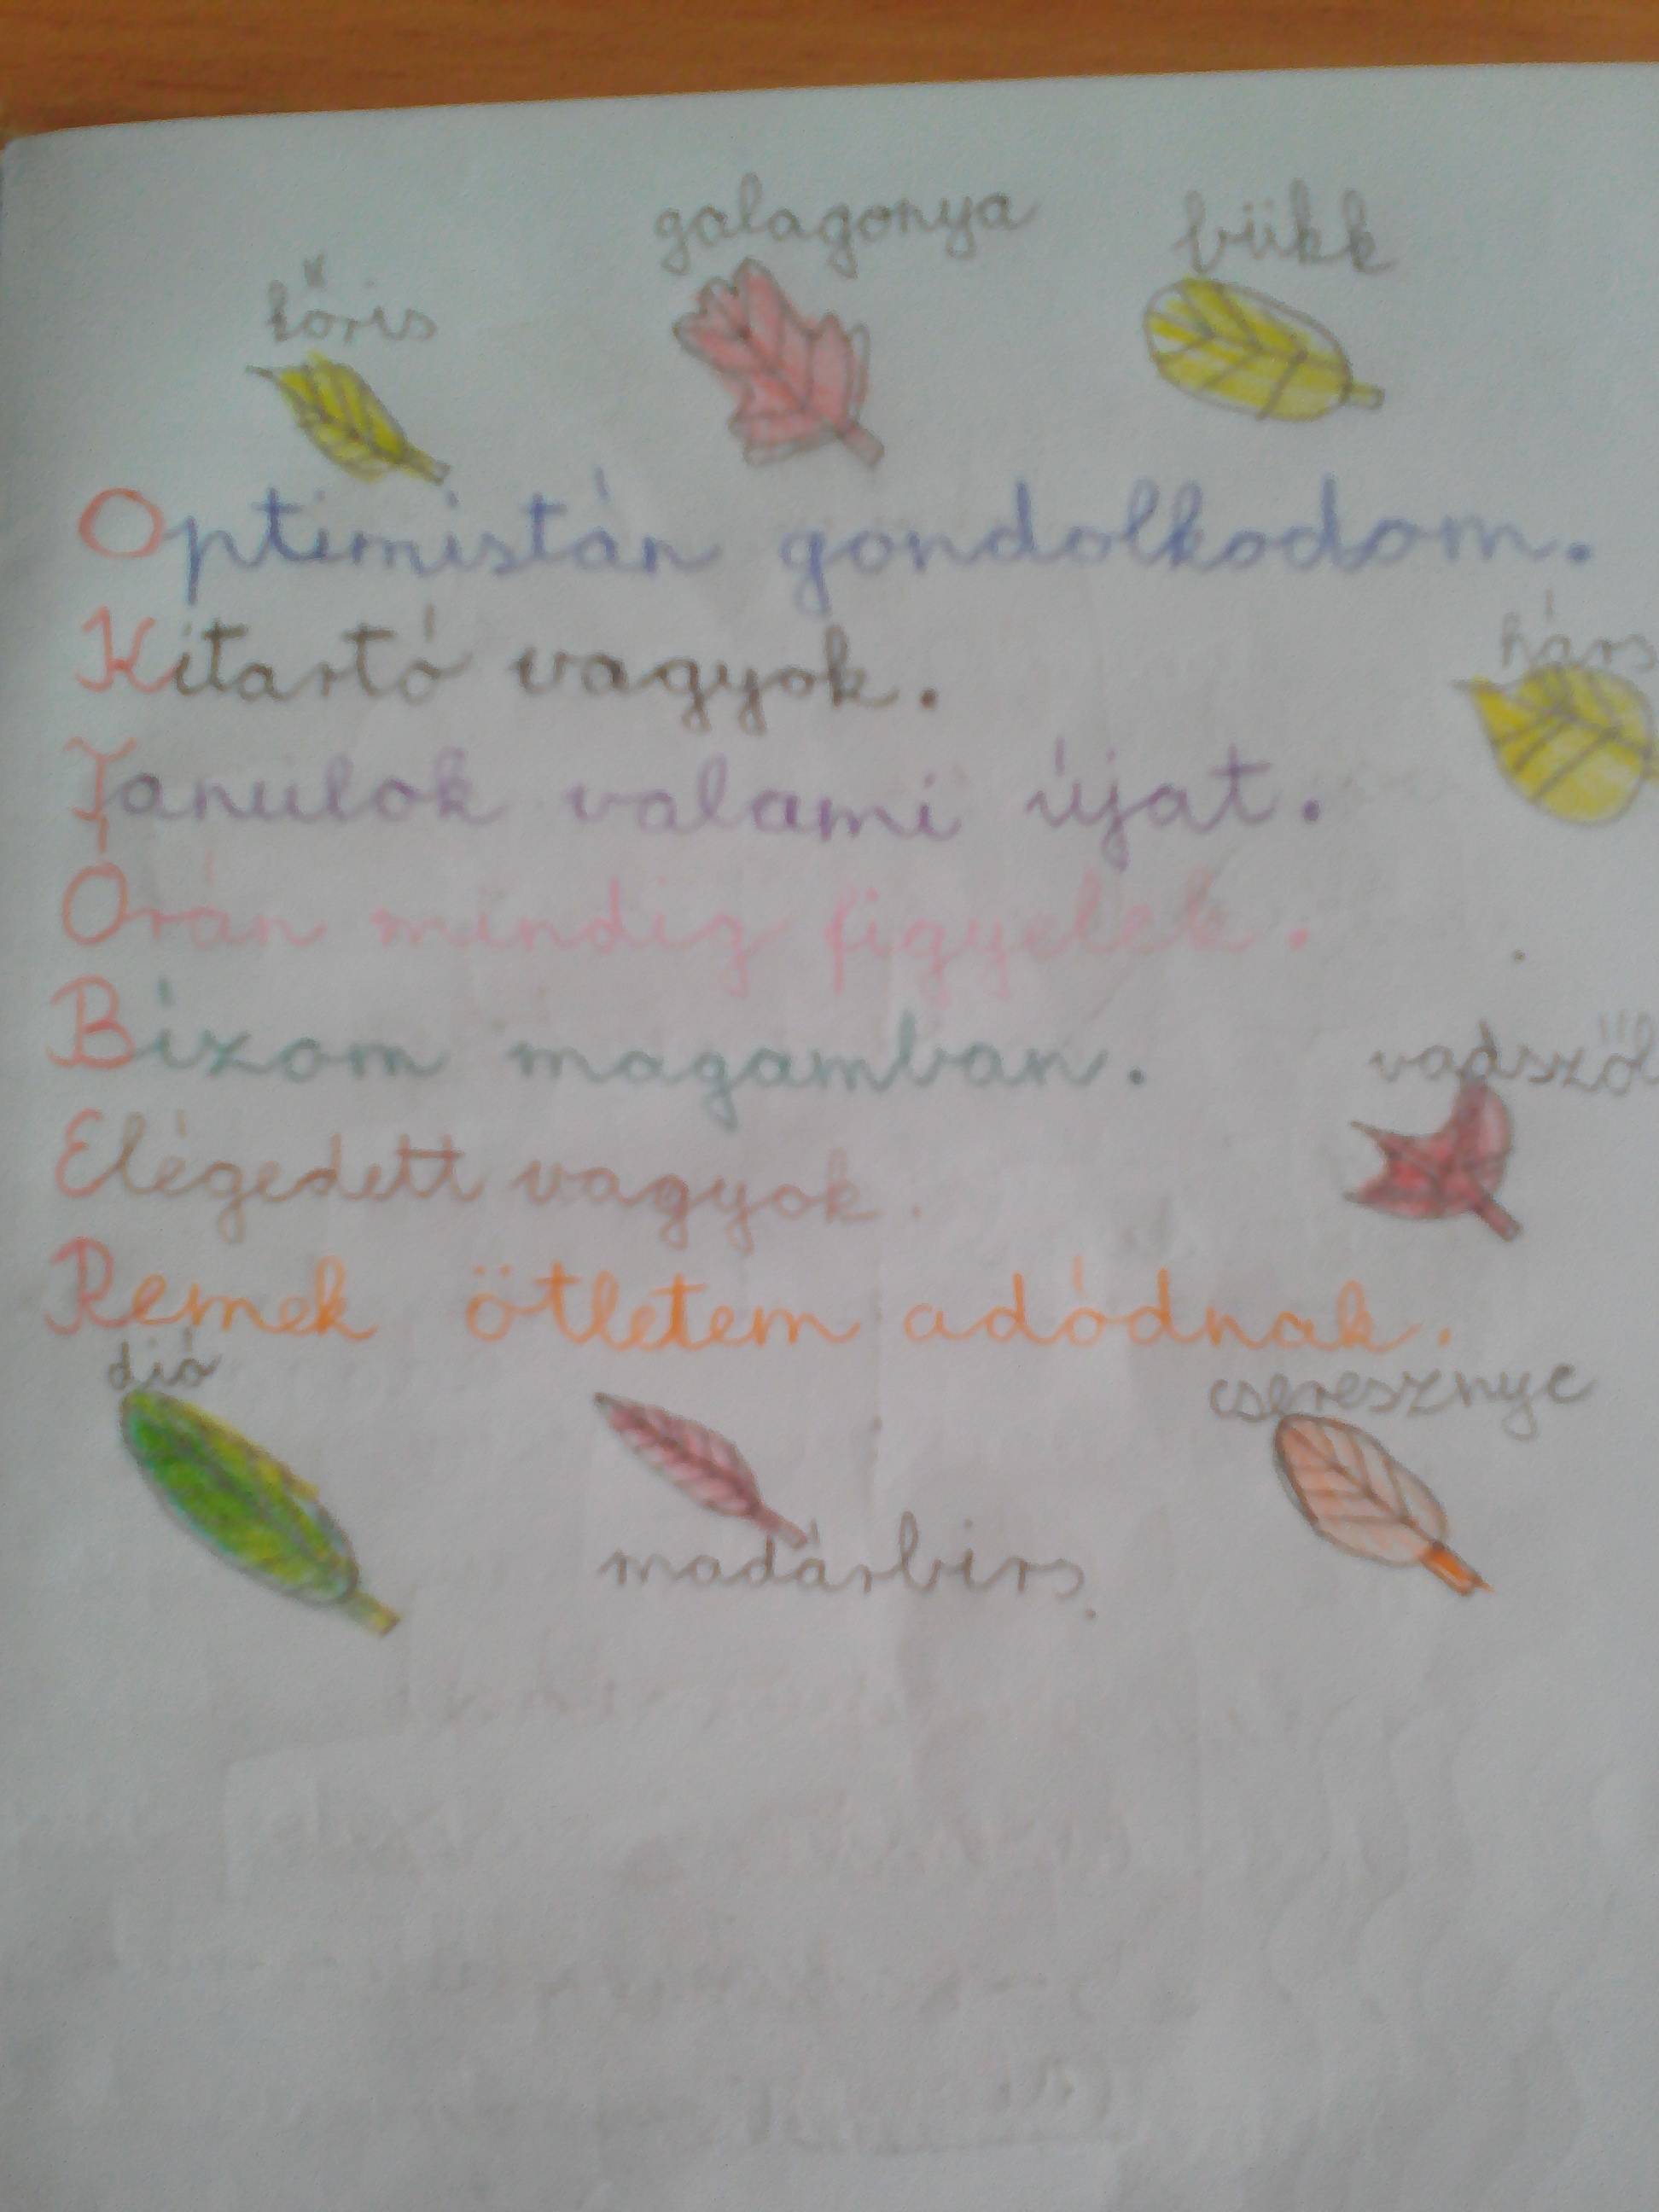 kőris galagonya bükk
Optimistán gondolkodom.
Kitartó vagyok.
hárs
Tanulok valami újat.
Órán mindig figyelek.
Bizom magamban.
vadszől
Elégedett vagyok.
Remek ötletem adódnak.
dió
cseresznye
madárbirs